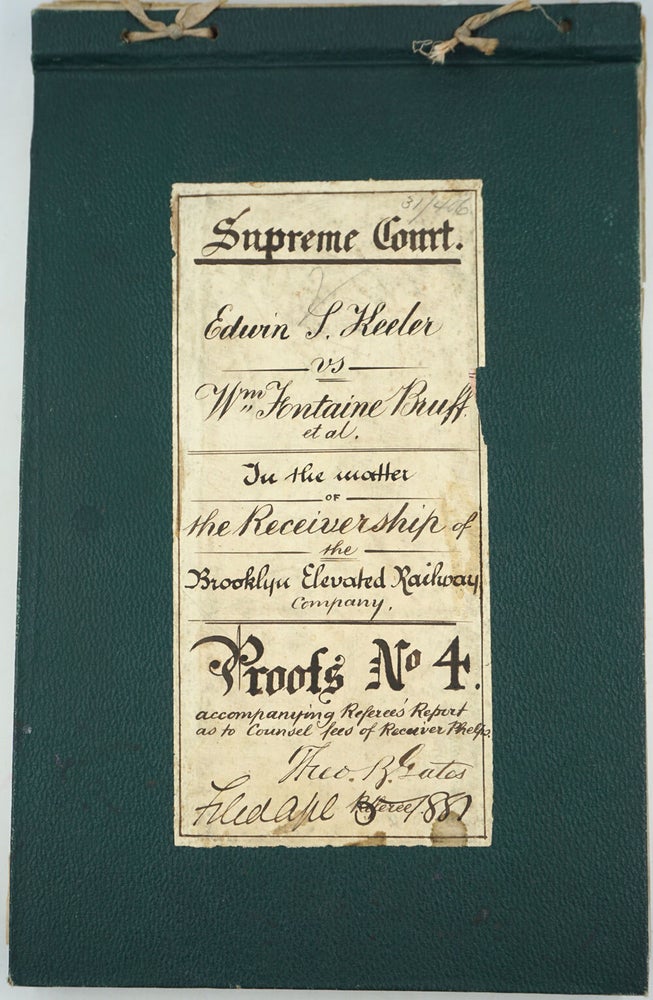 31/406
Supreme Court.
Edwin S. Keeler
vs
Wm Fontaine Bruff
et al.
In the matter
OF
the Receivership of
the
Brooklyn Elevated Railway
Company.
Proofs No 4.
accompanying Referee's Report
as to Counsel fees of Receiver Phelps
Theo. B. Gates
Referee
Filed Apl 8 1881